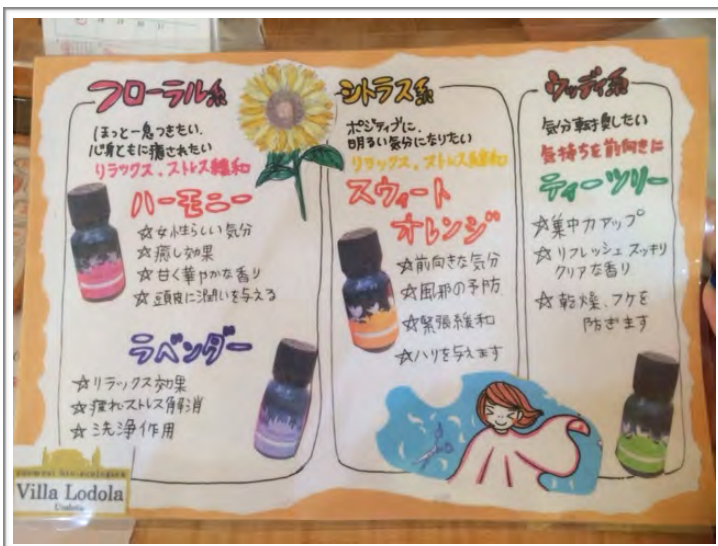 フローラル系
ほっと一息つきたい、
心身ともに癒されたい
リラックス、ストレス緩和
ハーモニー
☆女性らしい気分
☆癒し効果
☆甘く華やかな香り
☆頭皮に潤いを与える
ラベンダー
☆リラックス効果
☆疲れストレス解消
☆洗浄作用
シトラス系
ポジティブに、
明るい気分になりたい
リラックス、ストレス緩和
スウィート
オレンジ
☆前向きな気分
☆風邪の予防
☆緊張緩和
☆ハリを与えます
ウッディ系
気分転換したい
気持ちを前向きに
ティーツリー
☆集中力アップ
☆リフレッシュ スッキリ
クリアな香り
☆乾燥、フケを
防ぎます
Villa Lodola